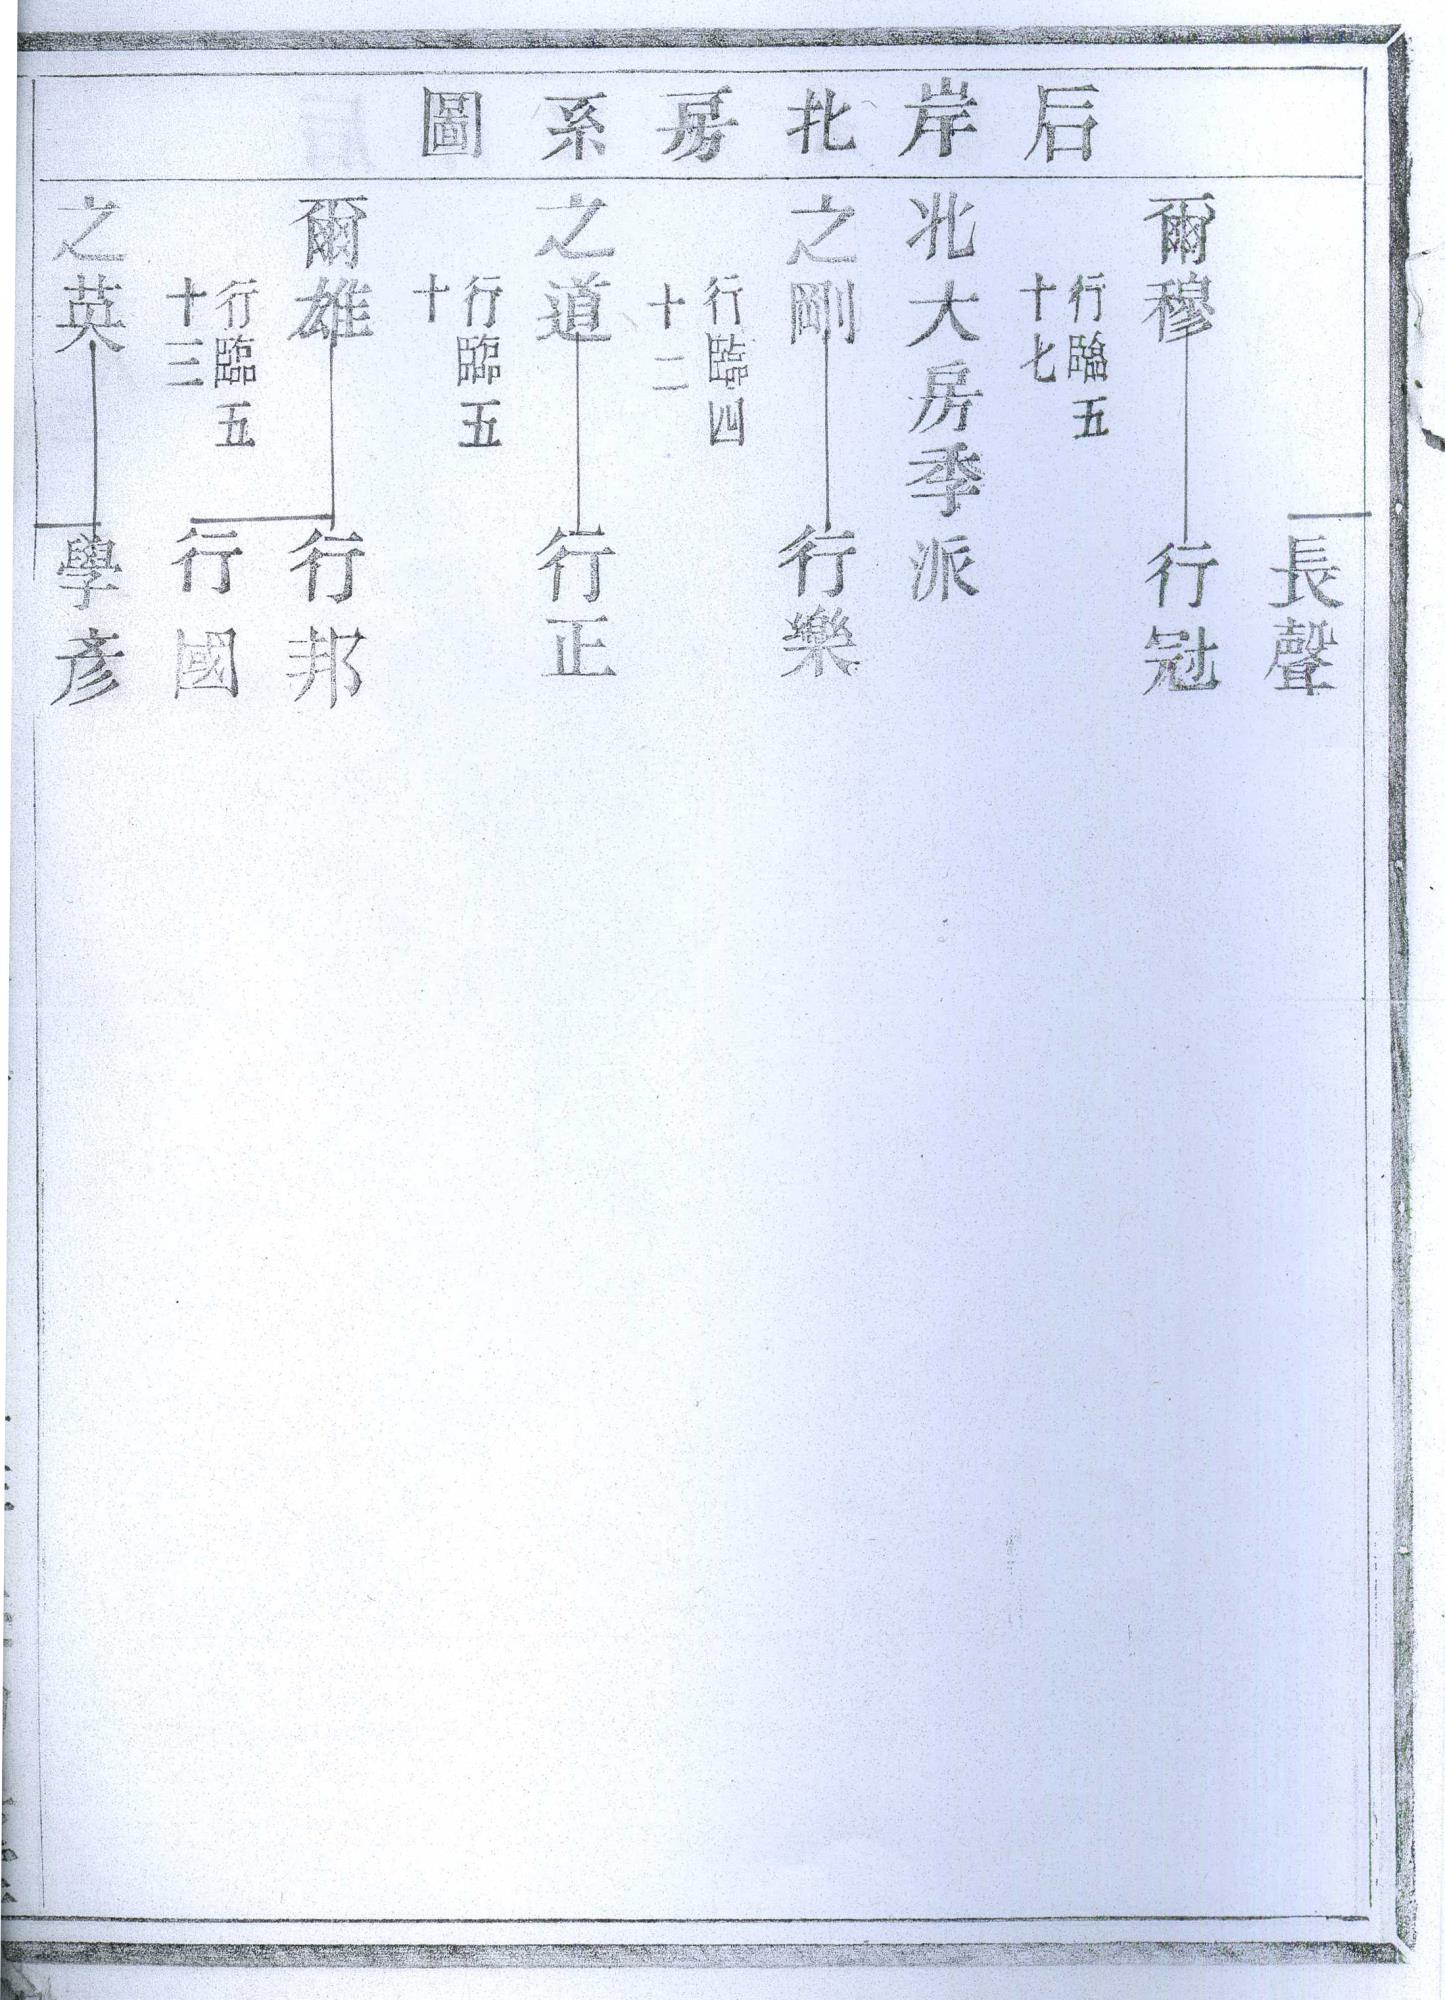 后岸北房系圖
長聲
爾穆
行冠
行臨五
十七
北大房季派
之剛
行樂
行臨四
十二
之道
行正
行臨五
十
爾雄
行邦
行國
行臨五
十三
之英
學彥